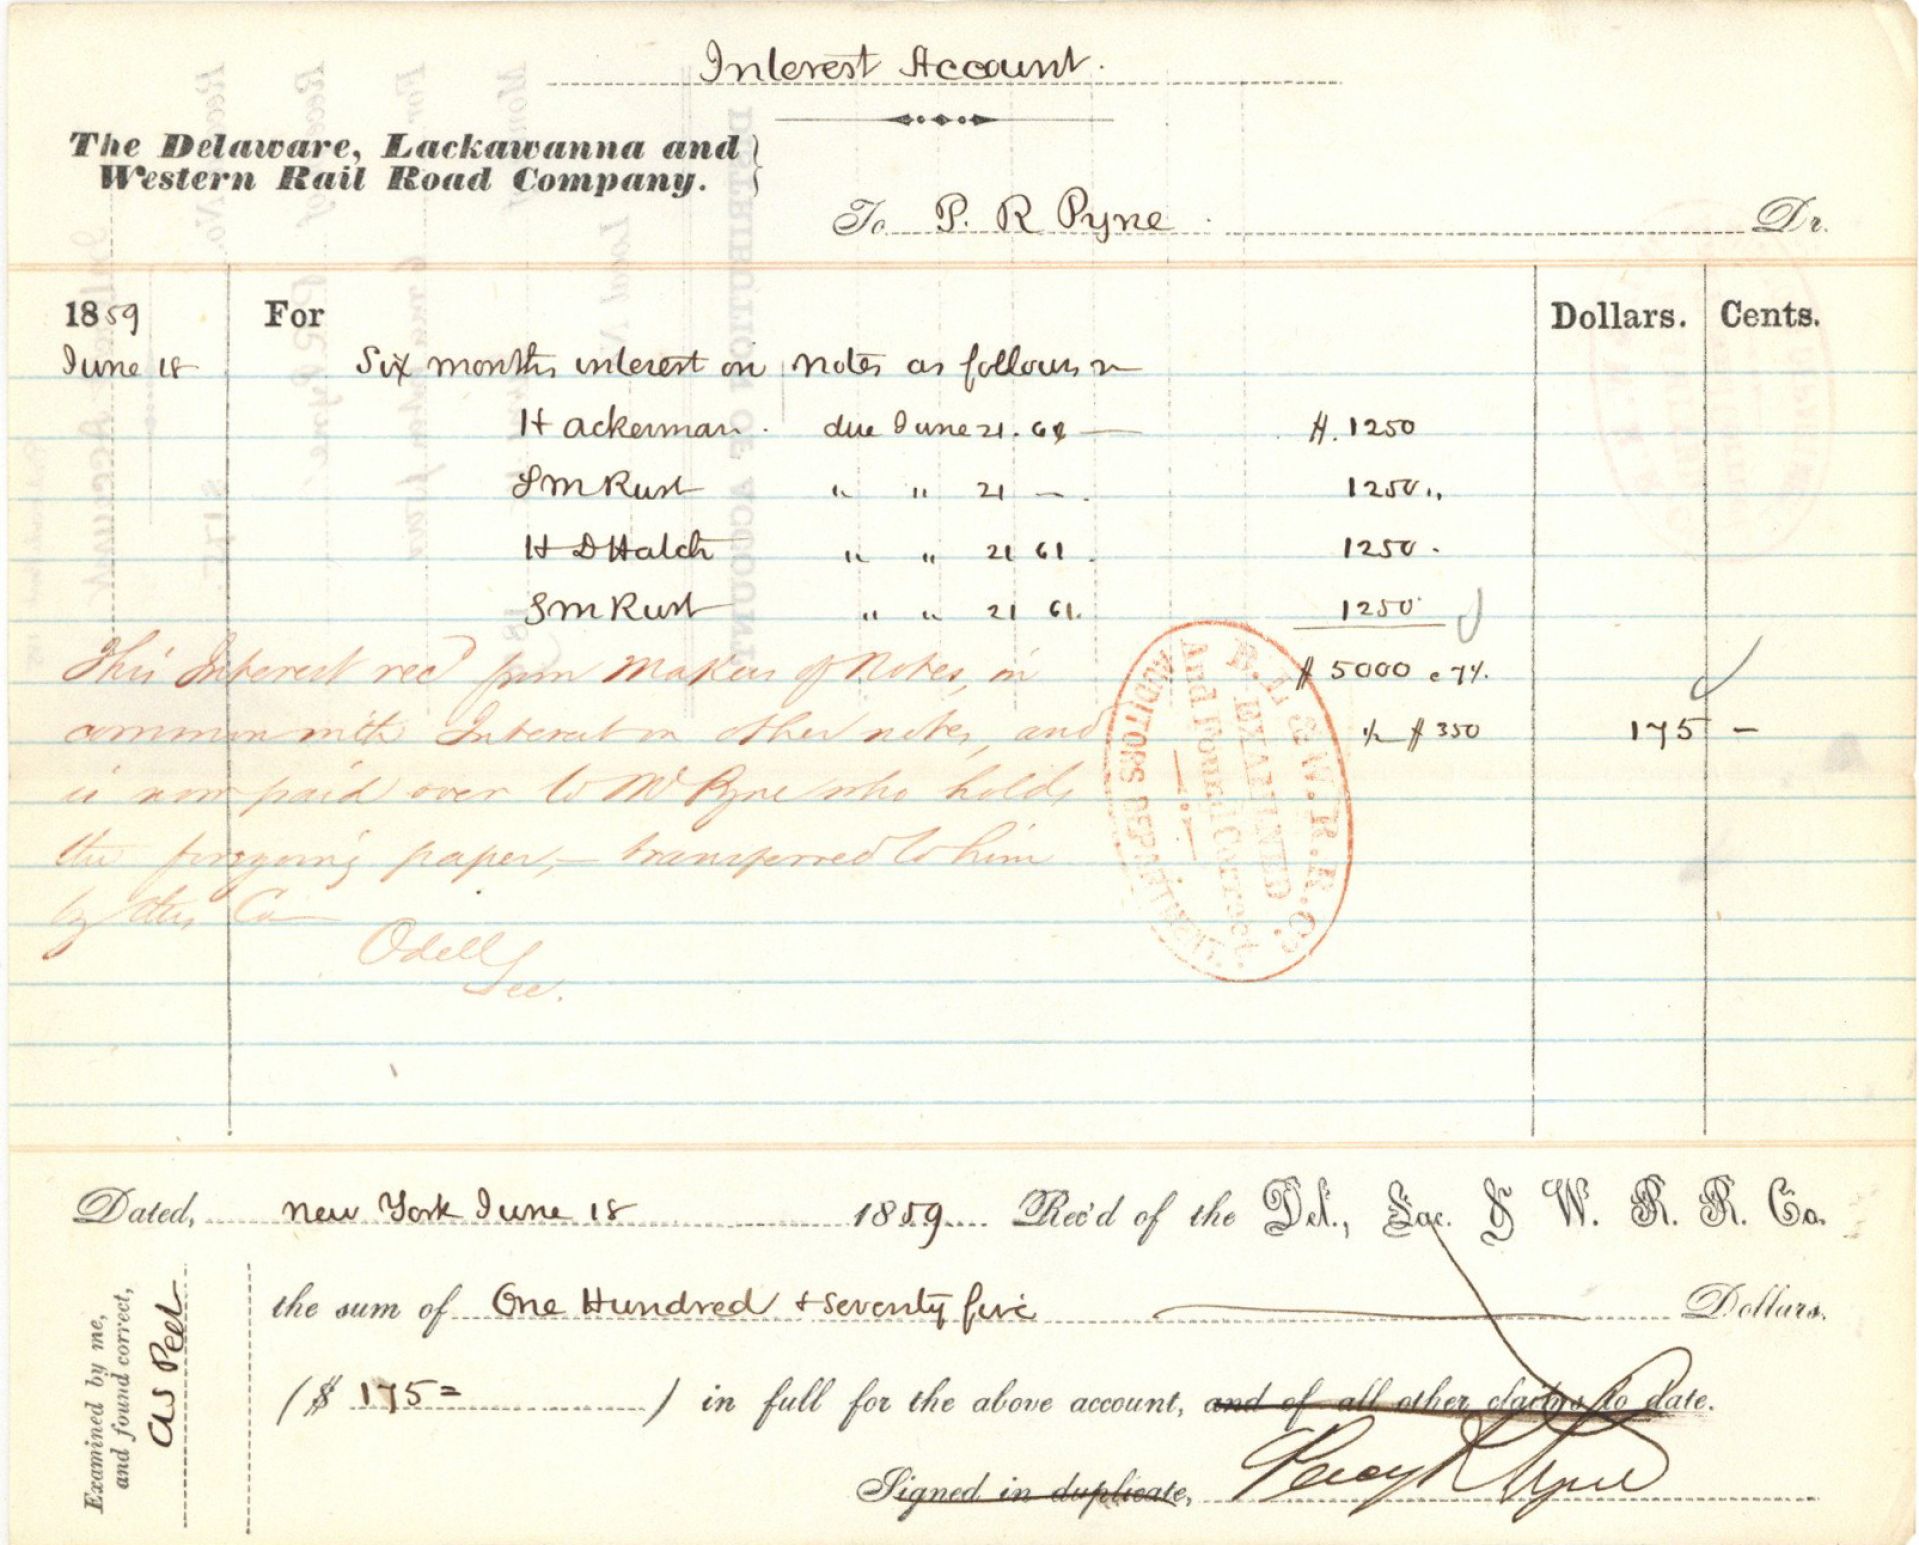 Interest Account.
The Delaware, Lackawanna and
Western Rail Road Company.
To P. R Pyne Dr.
1859 For Dollars. Cents.
June 18 Six months interest on notes as follows
H Ackerman. due June 21. 61 — $. 1250
S M Rust " " 21 — . 1250 "
H D Hatch " " 21 61. 1250.
S M Rust " " 21 61. 1250
This Interest recd from Makers of Notes, in $ 5000 @ 7%.
common with Interest on other notes, and ½ $ 350 175 –
is now paid over to Mr Pyne who holds
the foregoing paper, — transferred to him
by this Co
Odell
Sec.
D. L. & W. R. R. Co.
EXAMINED
And Found Correct.
AUDITORS DEPARTMENT.
Dated, New York June 18 1859 Rec'd of the Del., Lac. & W. R. R. Co.
the sum of One Hundred & seventy five Dollars.
($ 175= ) in full for the above account, and of all other claims to date.
Signed in duplicate, Percy R Pyne
Examined by me,
and found correct,
AS Peet